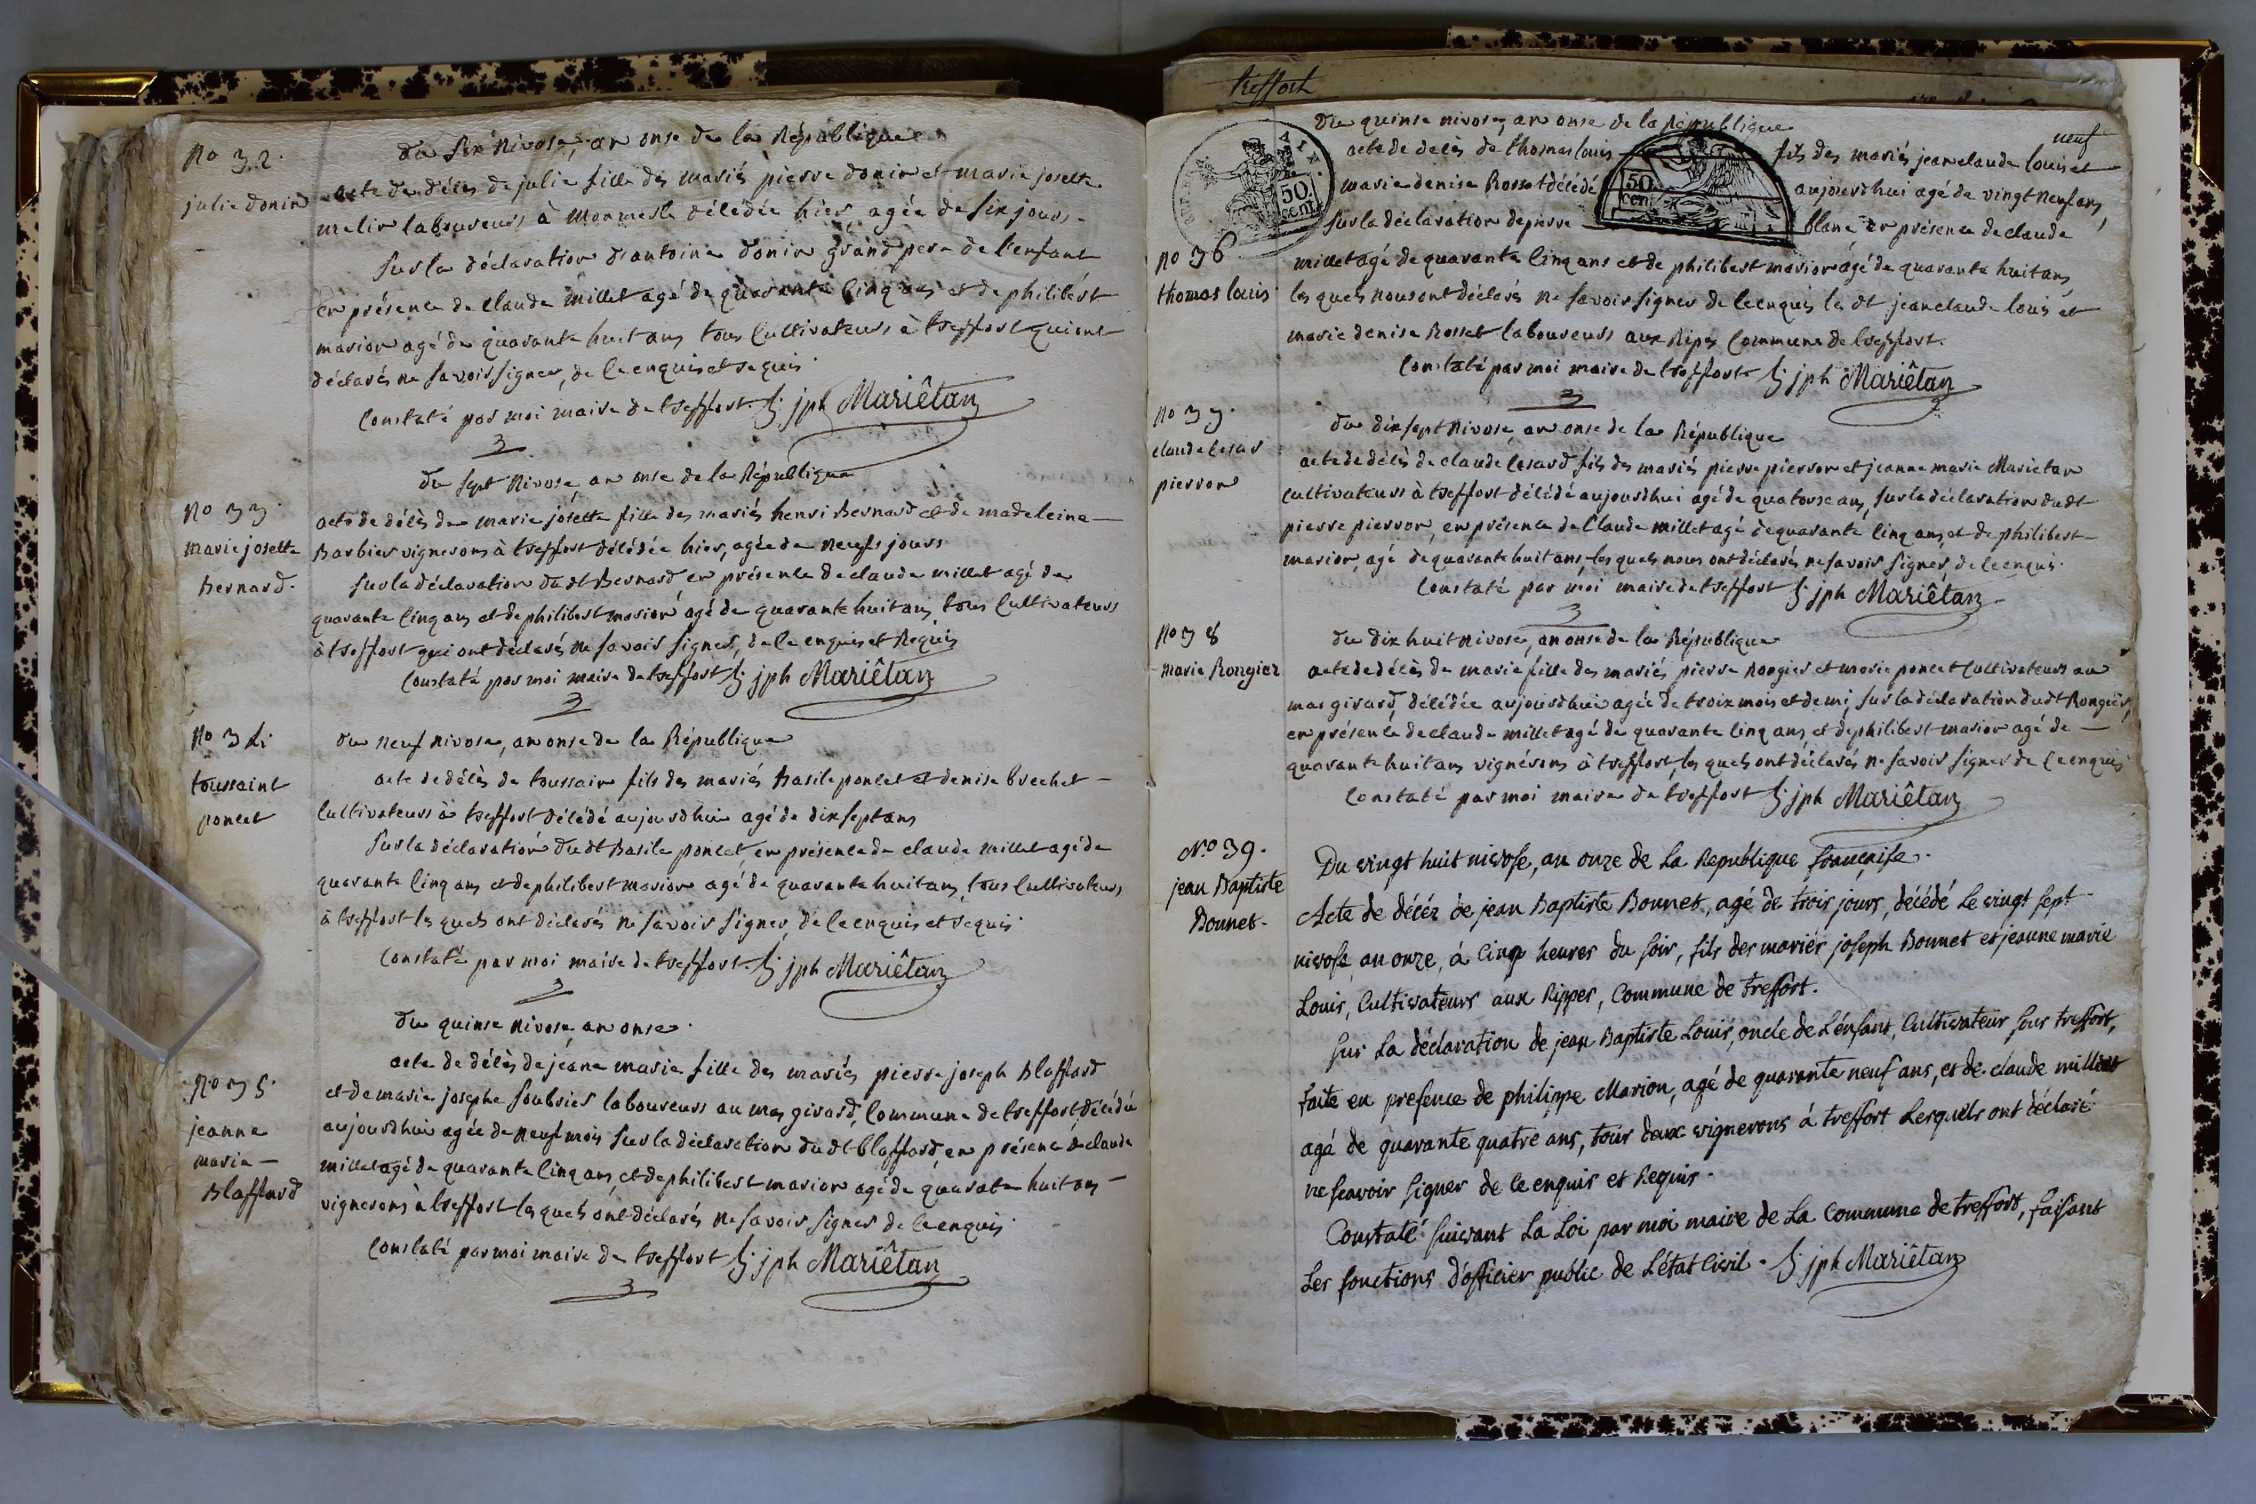 No 32.
julie donin
du six Nivose, an onse de la République
acte de délès de julie fille des mariés pierre donin et marie josette
melin laboureurs à Monmerle délédée hier, agée de six jours.
sur la déclaration d'antoine donin grand pere de l'enfant
en présence de claude millet agé de quarante cinq ans et de philibert
marion agé de quarante huit ans tous cultivateurs à treffort qui ont
déclarés ne savoir signer, de ce enquis et requis
Constaté par moi maire de treffort. S jph Mariêtan
No 33.
marie josette
Bernard.
du sept Nivose an onse de la République
acte de délès de marie josette fille des mariés henri Bernard et de madeleine
Barbier vignerons à treffort délédée hier, agée de neufs jours
sur la déclaration du dt Bernard en présence de claude millet agé de
quarante cinq ans et de philibert marion agé de quarante huit ans, tous cultivateurs
à treffort qui ont déclarés ne savoir signer, de ce enquis et Requis
Constaté par moi maire de treffort S jph Mariêtan
No 34.
toussaint
poncet
du neuf nivose, an onse de la République
acte de délès de toussain fils des mariés Basile poncet et denise brechet
cultivateurs à treffort délédé aujourdhui agé de dix sept ans
sur la déclaration du dt Basile poncet, en présence de claude millet agé de
quarante cinq ans et de philibert marion agé de quarante huit ans, tous cultivateurs
à treffort les quels ont déclarés ne savoir signer, de ce enquis et requis
Constaté par moi maire de treffort. S jph Mariêtan
No 35.
jeanne
marie
Blaffard
du quinse nivose an onse.
acte de délès de jeane marie fille des mariés pierre joseph Blaffard
et de marie josephe soubrier laboureurs au mas girard, Commune de treffort, délédée
aujourdhui agée de neuf mois sur la déclaration du dt blaffard, en présence de claude
millet agé de quarante cinq ans, et de philibert marion agé de quarate huit ans
vignerons à treffort les quels ont déclarés ne savoir signer de ce enquis
Constaté par moi maire de treffort S jph Mariêtan
treffort
50 cent.
50 cent.
No 36
thomas louis
du quinse nivose, an onse de la République
neuf
acte de délès de thomas louis fils des mariés jean claude louis et
marie denise Rosset délédé aujourdhui agé de vingt neuf ans,
sur la déclaration de pierre blanc en présence de claude
millet agé de quarante cinq ans et de philibert marion agé de quarante huit ans,
les quels nous ont déclarés ne savoir signer de ce enquis les dt jean claude louis et
marie denise Rosset laboureurs aux Ripes Commune de treffort.
Constaté par moi maire de treffort S jph Mariêtan
No 37.
claude cesar
pierron
du dix sept nivose, an onse de la République
acte de délès de claude Cesard fils des mariés pierre pierron et jeanne marie Marietan
cultivateurs à treffort délédé aujourdhui agé de quatorse ans, sur la déclaration du dt
pierre pierron, en présence de Claude millet agé de quarante cinq ans, et de philibert
marion, agé de quarante huit ans, les quels nous ont déclarés ne savoir signer, de ce enquis.
Constaté par moi maire de treffort S jph Mariêtan
No 38
marie Rongier
du dix huit nivose, an onse de la République
acte de délès de marie fille des mariés pierre Rongier et marie poncet cultivateurs au
mas girard, délédée aujourdhui agée de troix mois et demi, sur la déclaration du dt Rongier,
en présence de claude millet agé de quarante cinq ans, et de philibert marion agé de
quarante huit ans vignérons à treffort, les quels ont déclarés ne savoir signer de ce enquis
Constaté par moi maire de treffort S jph Mariêtan
No. 39.
jean Baptiste
Bonnet.
Du vingt huit nivose, an onze de La Republique françaiſe.
Acte de décéz de jean Baptiste Bonnet, agé de trois jours, décédé Le vingt sept
nivose an onze, à cinq heures du soir, fils des mariés joseph Bonnet et jeanne marie
Louis, Cultivateurs aux Rippes, Commune de treffort.
Sur La déclaration de jean Baptiste Louis, oncle de L'énfant, Cultivateur sous treffort,
faite en presence de philippe Marion, agé de quarante neuf ans, et de claude millet
agé de quarante quatre ans, tous deux vignerons á treffort Lesquels ont déclaré
ne scavoir signer de ce enquis et Requis.
Constaté suivant La Loi par moi maire de La Commune de treffort, faisant
Les fonctions d'officier public de L'état Civil. S jph Mariêtan